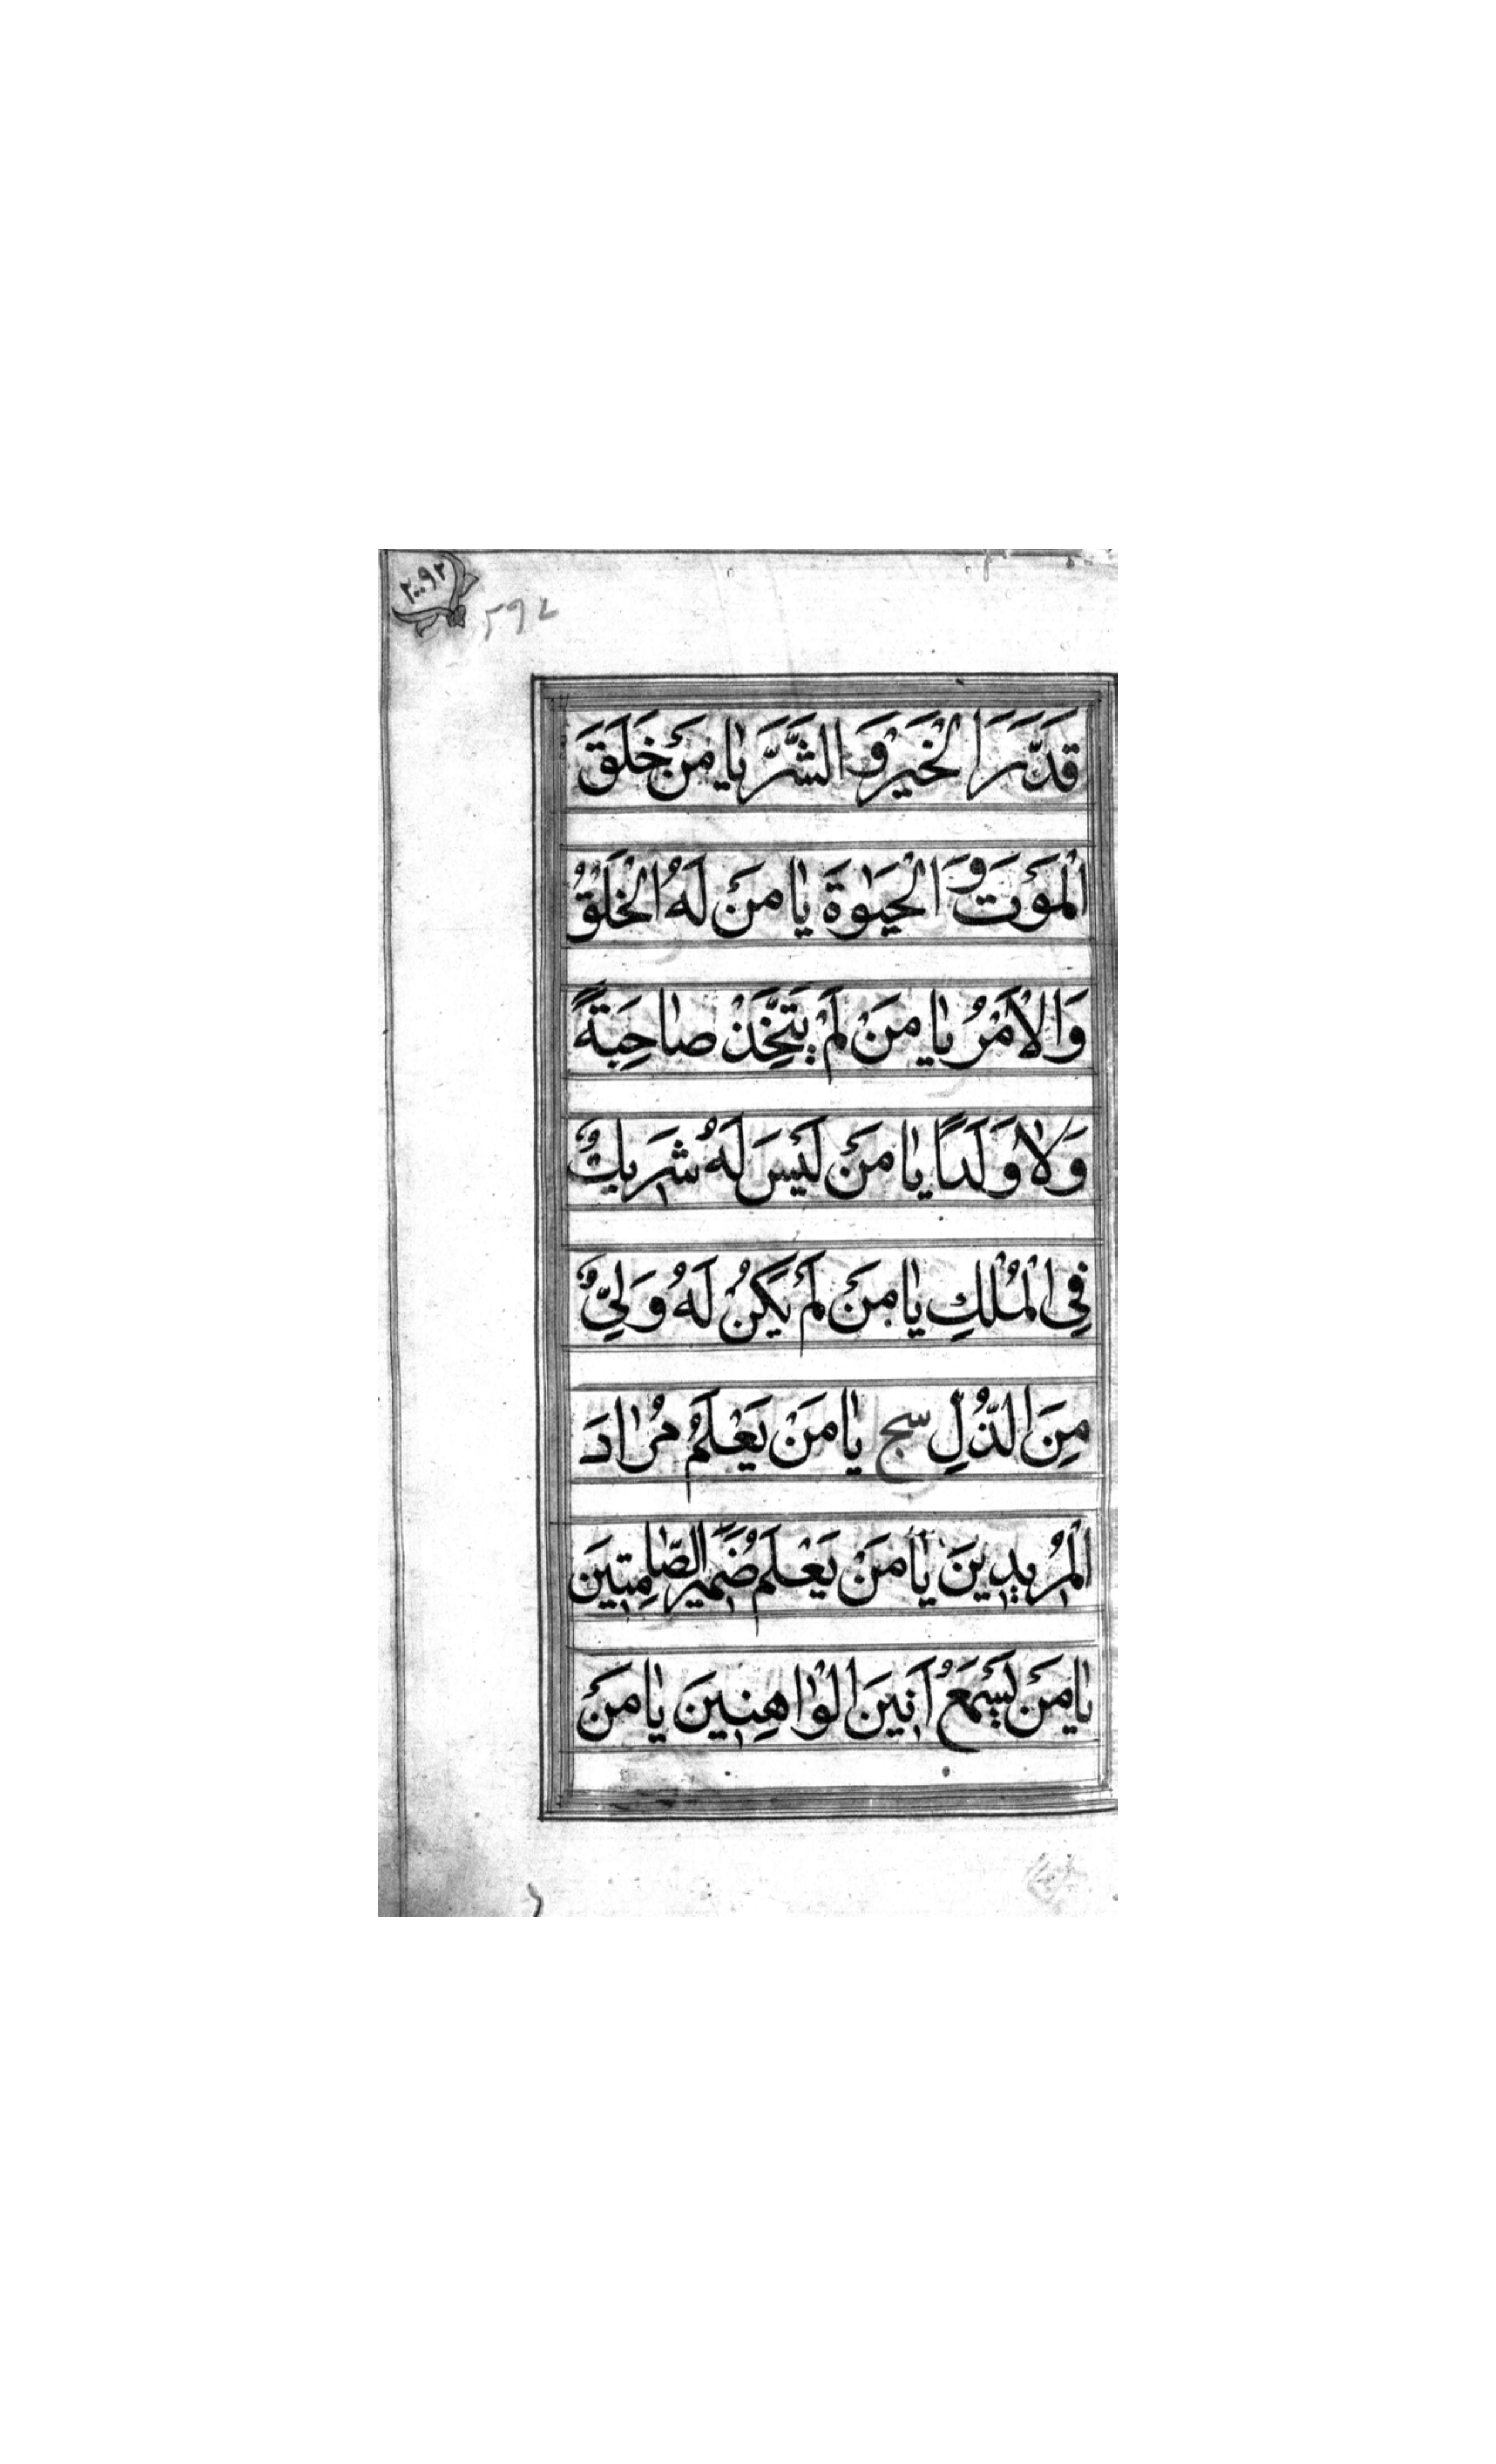 ۲۰۹۲
۲۹۲
قَدَّرَ الْخَيْرَ وَ الشَّرَّ يَا مَنْ خَلَقَ
الْمَوْتَ وَ الْحَيٰوةَ يَا مَنْ لَهُ الْخَلْقُ
وَ الْاَمْرُ يَا مَنْ لَمْ يَتَّخِذْ صَاحِبَةً
وَ لَا وَلَدًا يَا مَنْ لَيْسَ لَهُ شَرِيكٌ
فِي الْمُلْكِ يَا مَنْ لَمْ يَكُنْ لَهُ وَلِيٌّ
مِنَ الذُّلِّ سبح يَا مَنْ يَعْلَمُ مُرَادَ
الْمُرِيدِينَ يَا مَنْ يَعْلَمُ ضَمِيرَ الصَّامِتِينَ
يَا مَنْ يَسْمَعُ اَنِينَ الْوَاهِنِينَ يَا مَنْ